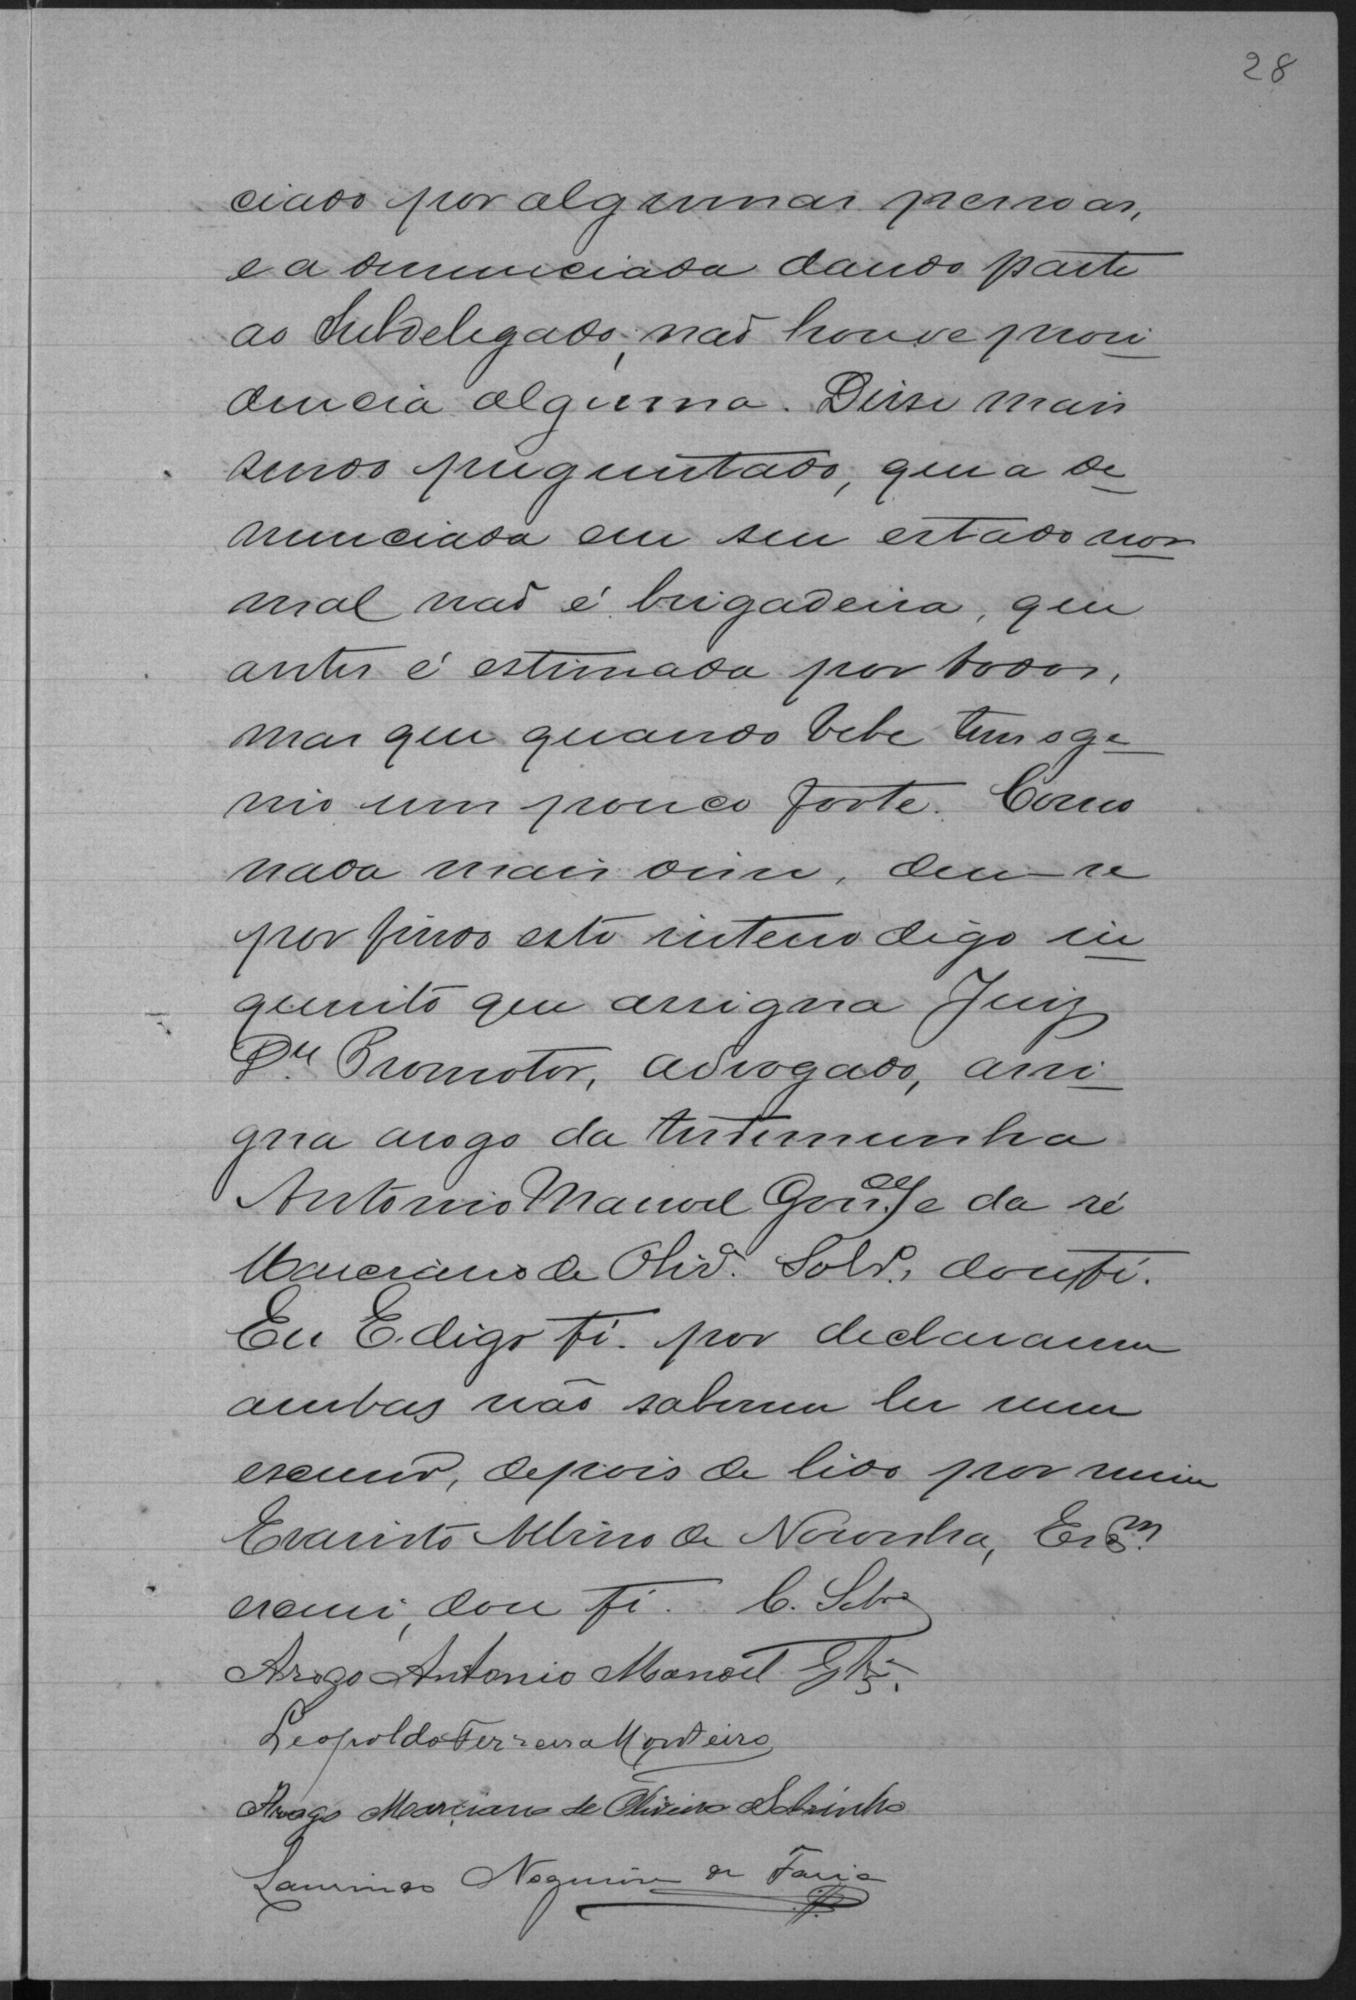 28
ciado por algumas pessoas,
e a denunciada dando parte
ao Subdelegado, naõ houve provi
dencia alguma. Disse mais
sendo preguntado, que a de
nunciada em seu estado nor
mal naõ é brigadeira, que
antes é estimada por todos,
mas que quando bebe tem o ge
nio um pouco forte. Como
nada mais disse, deu-se
por findo este interro digo in
querito que assigna Juiz
Dr. Promotor, advogado, assi
gna arogo da testemunha
Antonio Manoel Gonçes e da ré
Marciano de Olivª. Sobrº, dou fé.
Eu E. digo fé. por declararem
ambas não saberem ler nem
escrever, depois de lido por mim
Evaristo Albino de Noronha, Escm.
escrevi, dou fé. C. Silva
Arogo Antonio Manoel Glz.
Leopoldo Ferreira Monteiro
Arogo Marciano de Oliveira Sobrinho
Nogueira de Faria